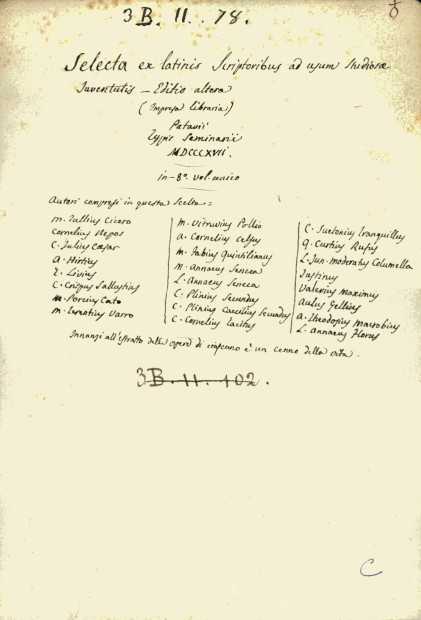 3B. II. 78.
8
Selecta ex latinis Scriptoribus ad usum studiosæ
Juventutis – Editio altera
(Impresa libraria)
Patavii
Typis Seminarii
MDCCCXVII.
in-8º vol. unico
Autori compresi in questa Scelta =
M. Tullius Cicero
Cornelius Nepos
C. Julius Cæsar
A. Hirtius
T. Livius
C. Crispus Sallustius
M. Porcius Cato
M. Terentius Varro
M. Vitruvius Pollio
A. Cornelius Celsus
M. Fabius Quintilianus
M. Annaeus Seneca
L. Annaeus Seneca
C. Plinius Secundus
C. Plinius Caecilius Secundus
C. Cornelius Tacitus
C. Suetonius Tranquillus
Q. Curtius Rufus
L. Jun. Moderatus Columella
Justinus
Valerius Maximus
Aulus Gellius
A. Theodosius Macrobius
L. Annaeus Florus
Innanzi all'estratto delle opere di ciascuno è un cenno della vita.
3B. II. 102.
C